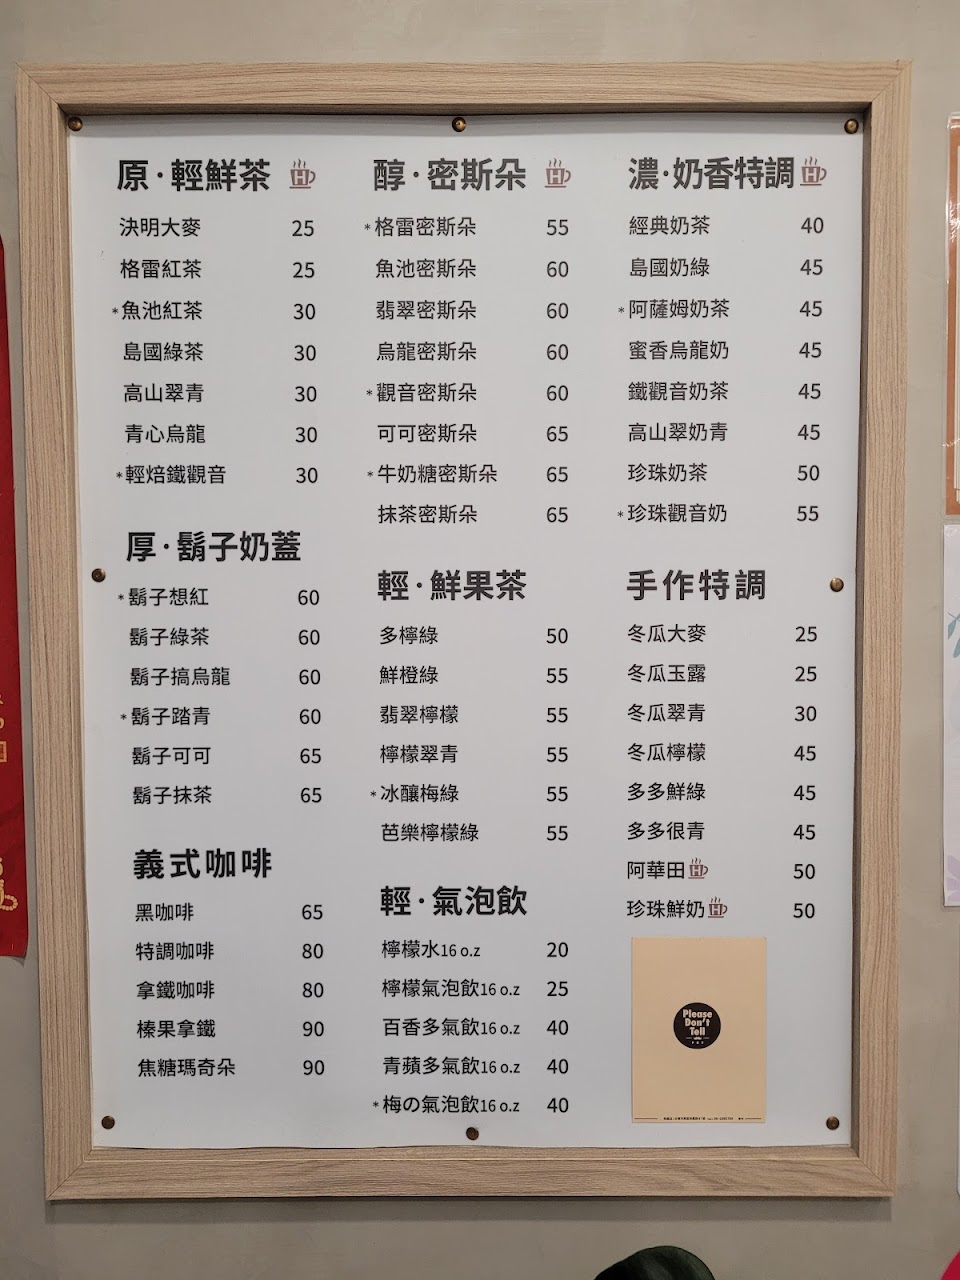 原·輕鮮茶
決明大麥 25
格雷紅茶 25
*魚池紅茶 30
島國綠茶 30
高山翠青 30
青心烏龍 30
*輕焙鐵觀音 30
厚·鬍子奶蓋
*鬍子想紅 60
鬍子綠茶 60
鬍子搞烏龍 60
*鬍子踏青 60
鬍子可可 65
鬍子抹茶 65
義式咖啡
黑咖啡 65
特調咖啡 80
拿鐵咖啡 80
榛果拿鐵 90
焦糖瑪奇朵 90
醇·密斯朵
*格雷密斯朵 55
魚池密斯朵 60
翡翠密斯朵 60
烏龍密斯朵 60
*觀音密斯朵 60
可可密斯朵 65
*牛奶糖密斯朵 65
抹茶密斯朵 65
輕·鮮果茶
多檸綠 50
鮮橙綠 55
翡翠檸檬 55
檸檬翠青 55
*冰釀梅綠 55
芭樂檸檬綠 55
輕·氣泡飲
檸檬水16 o.z 20
檸檬氣泡飲16 o.z 25
百香多氣飲16 o.z 40
青蘋多氣飲16 o.z 40
*梅の氣泡飲16 o.z 40
濃·奶香特調
經典奶茶 40
島國奶綠 45
*阿薩姆奶茶 45
蜜香烏龍奶 45
鐵觀音奶茶 45
高山翠奶青 45
珍珠奶茶 50
*珍珠觀音奶 55
手作特調
冬瓜大麥 25
冬瓜玉露 25
冬瓜翠青 30
冬瓜檸檬 45
多多鮮綠 45
多多很青 45
阿華田 50
珍珠鮮奶 50
Please
Don't
Tell